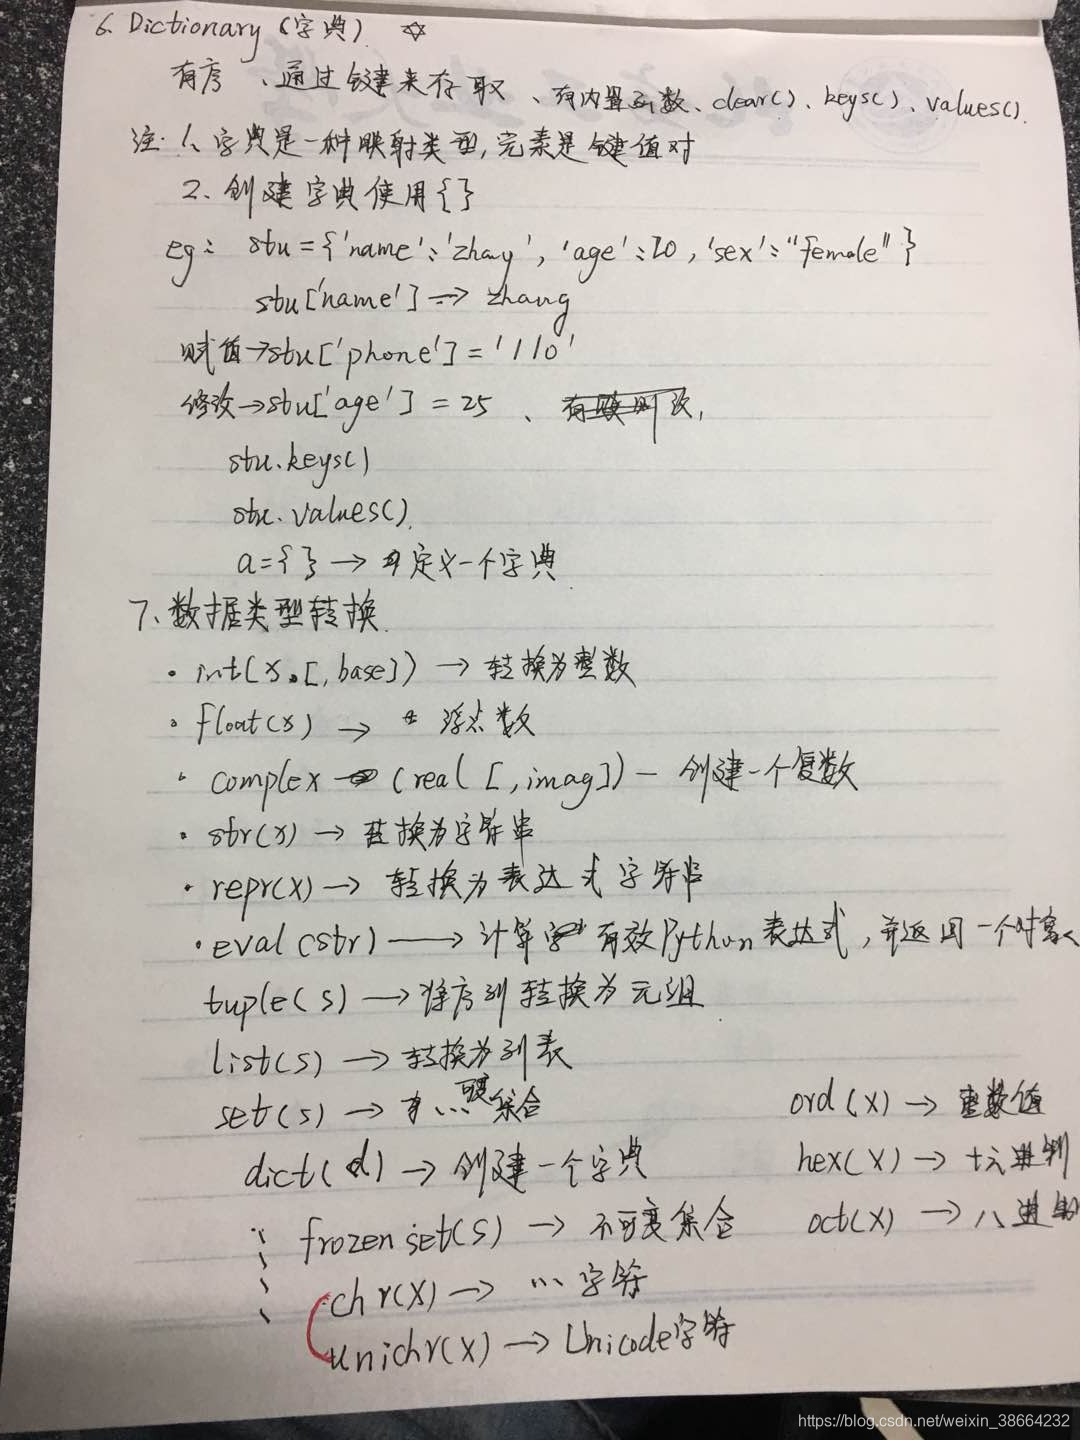 6、Dictionary（字典） ☆
有序 、通过键来存取 、有内置函数、clear()、keys()、values()
注: 1、字典是一种映射类型,元素是键值对
2、创建字典使用{}
eg: stu={'name':'zhang', 'age':20,'sex':"female"}
stu['name'] → zhang
赋值→stu['phone']='110'
修改→stu['age']=25 、
stu.keys()
stu.values()
a={} → 定义一个字典
7、数据类型转换
· int(x [,base]) → 转换为整数
· float(x) → 浮点数
· complex (real [,imag]) — 创建一个复数
· str(x) → 转换为字符串
· repr(x) → 转换为表达式字符串
· eval(str) → 计算 有效Python表达式,并返回一个对象
tuple(s) → 将序列转换为元组
list(s) → 转换为列表
set(s) → ... 可变集合 ord(x) → 整数值
dict(d) → 创建一个字典 hex(x) → 十六进制
frozen set(s) → 不可变集合 oct(x) → 八进制
chr(x) → ... 字符
unichr(x) → Unicode字符
https://blog.csdn.net/weixin_38664232